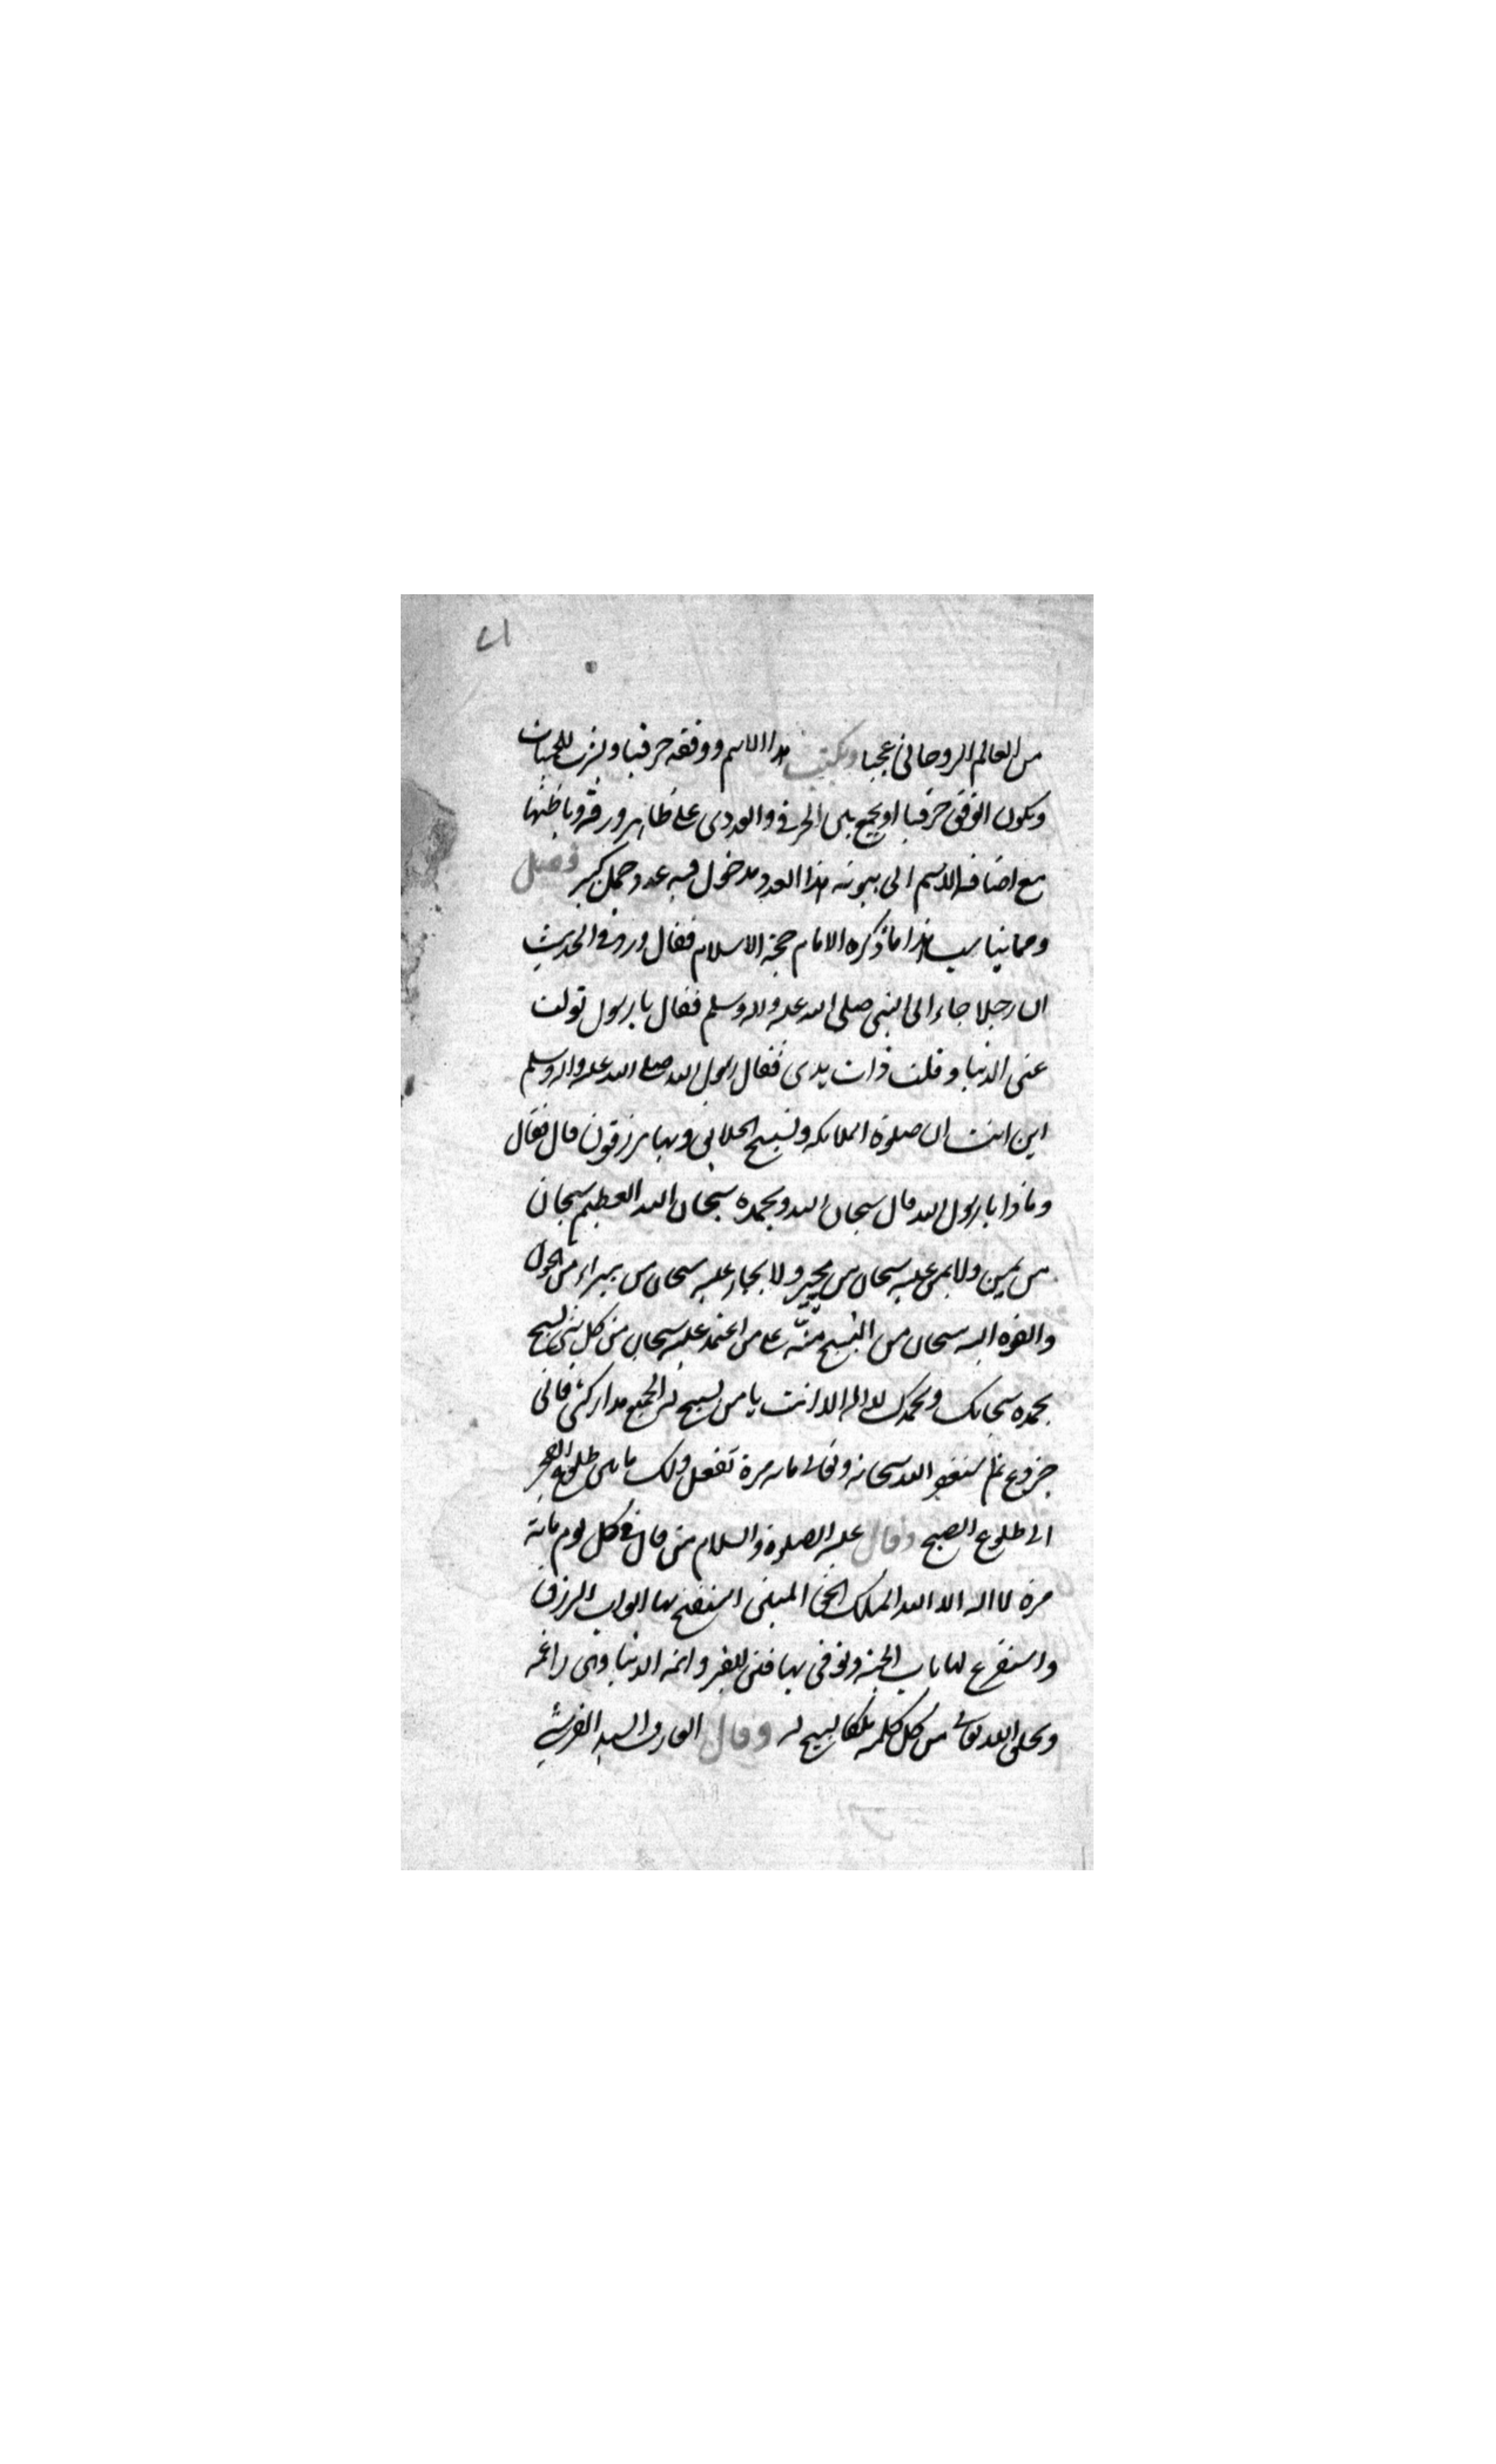 من العالم الروحانى عجبا ويكتب هذا الاسم ووفقه حرفيا ويشرب للحميات
ويكون الوفق حرفيا او يجمع بين الحرفى والعددى على ظاهر ورقة وباطنها
مع اضافة الاسم الى بيوته هذا العدد مدخول فيه عدد جمل كبير فصل
ومما يناسب هذا ما ذكره الامام حجة الاسلام فقال ورد فى الحديث
ان رجلا جاء الى النبى صلى الله عليه واله وسلم فقال يا رسول تولت
عنى الدنيا وقلت ذات يدى فقال رسول الله صلى الله عليه واله وسلم
اين انت من صلوة الملائكة وتسبيح الخلايق وبها يرزقون قال فقال
وماذا يا رسول الله قال سبحان الله وبحمده سبحان الله العظيم سبحان
من يمن ولا يمن عليه سبحان من يجير ولا يجار عليه سبحان من يبراء من الحول
والقوه اليه سبحان من التسبيح منة على من اعتمد عليه سبحان من كل شئ يسبح
بحمده سبحانك وبحمدك لا اله الا انت يا من يسبح له الجميع تداركنى فانى
جزوع ثم استغفر الله سبحانه وتعالى مايه مرة تفعل ذلك ما بين طلوع الفجر
الى طلوع الصبح وقال عليه الصلوة والسلام من قال فى كل يوم ماية
مرة لا اله الا الله الملك الحق المبين استفتح بها ابواب الرزق
واستقرع لها باب الجنة ووقى بها فتن القبر واتته الدنيا وهى راغمه
وخلق الله تعالى من كل كلمه ملكا يسبح له وقال العارف السيد القرشى